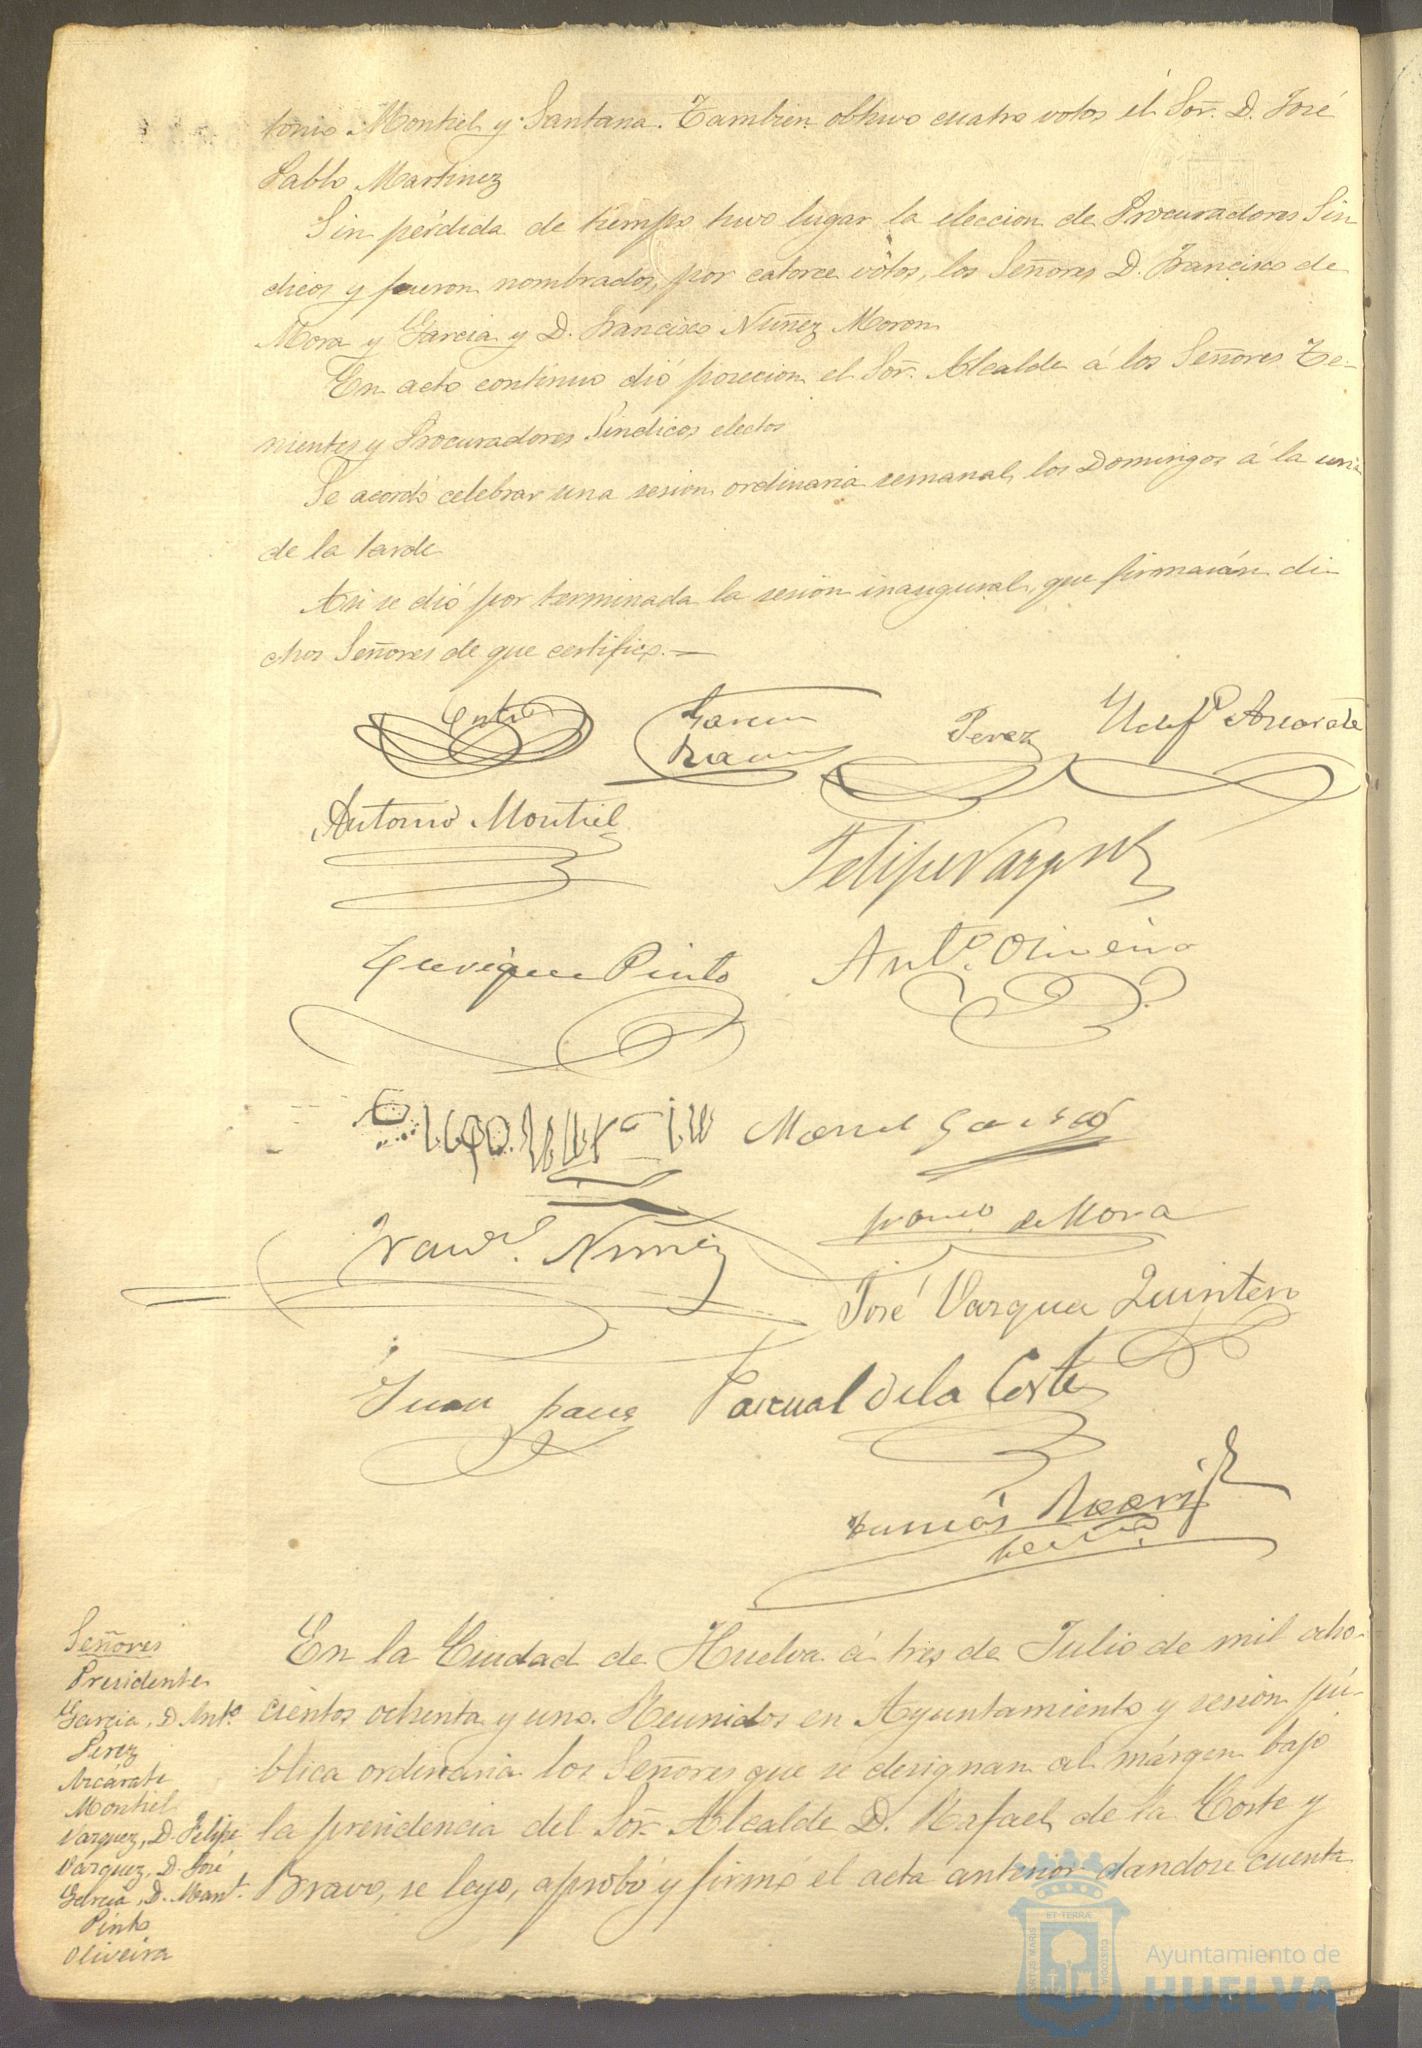 tonio Montiel y Santana. Tambien obtuvo cuatro votos el Sor. D. José
Pablo Martinez
Sin pérdida de tiempo tuvo lugar la eleccion de Procuradores Sin
dicos y fueron nombrados, por catorce votos, los Señores D. Francisco de
Mora y Garcia y D. Francisco Nuñez Moron
En acto continuo dió posecion el Sor. Alcalde á los Señores Te-
nientes y Procuradores Sindicos electos
Se acordó celebrar una sesion ordinaria semanal, los Domingos á la una
de la tarde
Asi se dió por terminada la sesion inaugural, que firmarán di-
chos Señores de que certifico.—
Corte Garcia Perez Ildefº Azcarate
Ramos
Antonio Montiel
Felipe Vazquez
Enrique Pinto Antº. Oliveira
Manuel Garcia
Francº de Mora
Franco. Nuñez
José Vazquez Quintero
Juan Pascual de la Corte
Tomás
Señores
Presidente
Garcia, D. Antº.
Perez
Azcárate
Montiel
Vazquez, D. Felipe
Vazquez, D. José
Garcia, D. Manl.
Pinto
Oliveira
En la Ciudad de Huelva á tres de Julio de mil ocho-
cientos ochenta y uno. Reunidos en Ayuntamiento y sesion pú-
blica ordinaria los Señores que se designan al márgen bajo
la presidencia del Sor. Alcalde D. Rafael de la Corte y
Bravo, se leyo, aprobó y firmó el acta anterior dandose cuenta
Ayuntamiento de
HUELVA